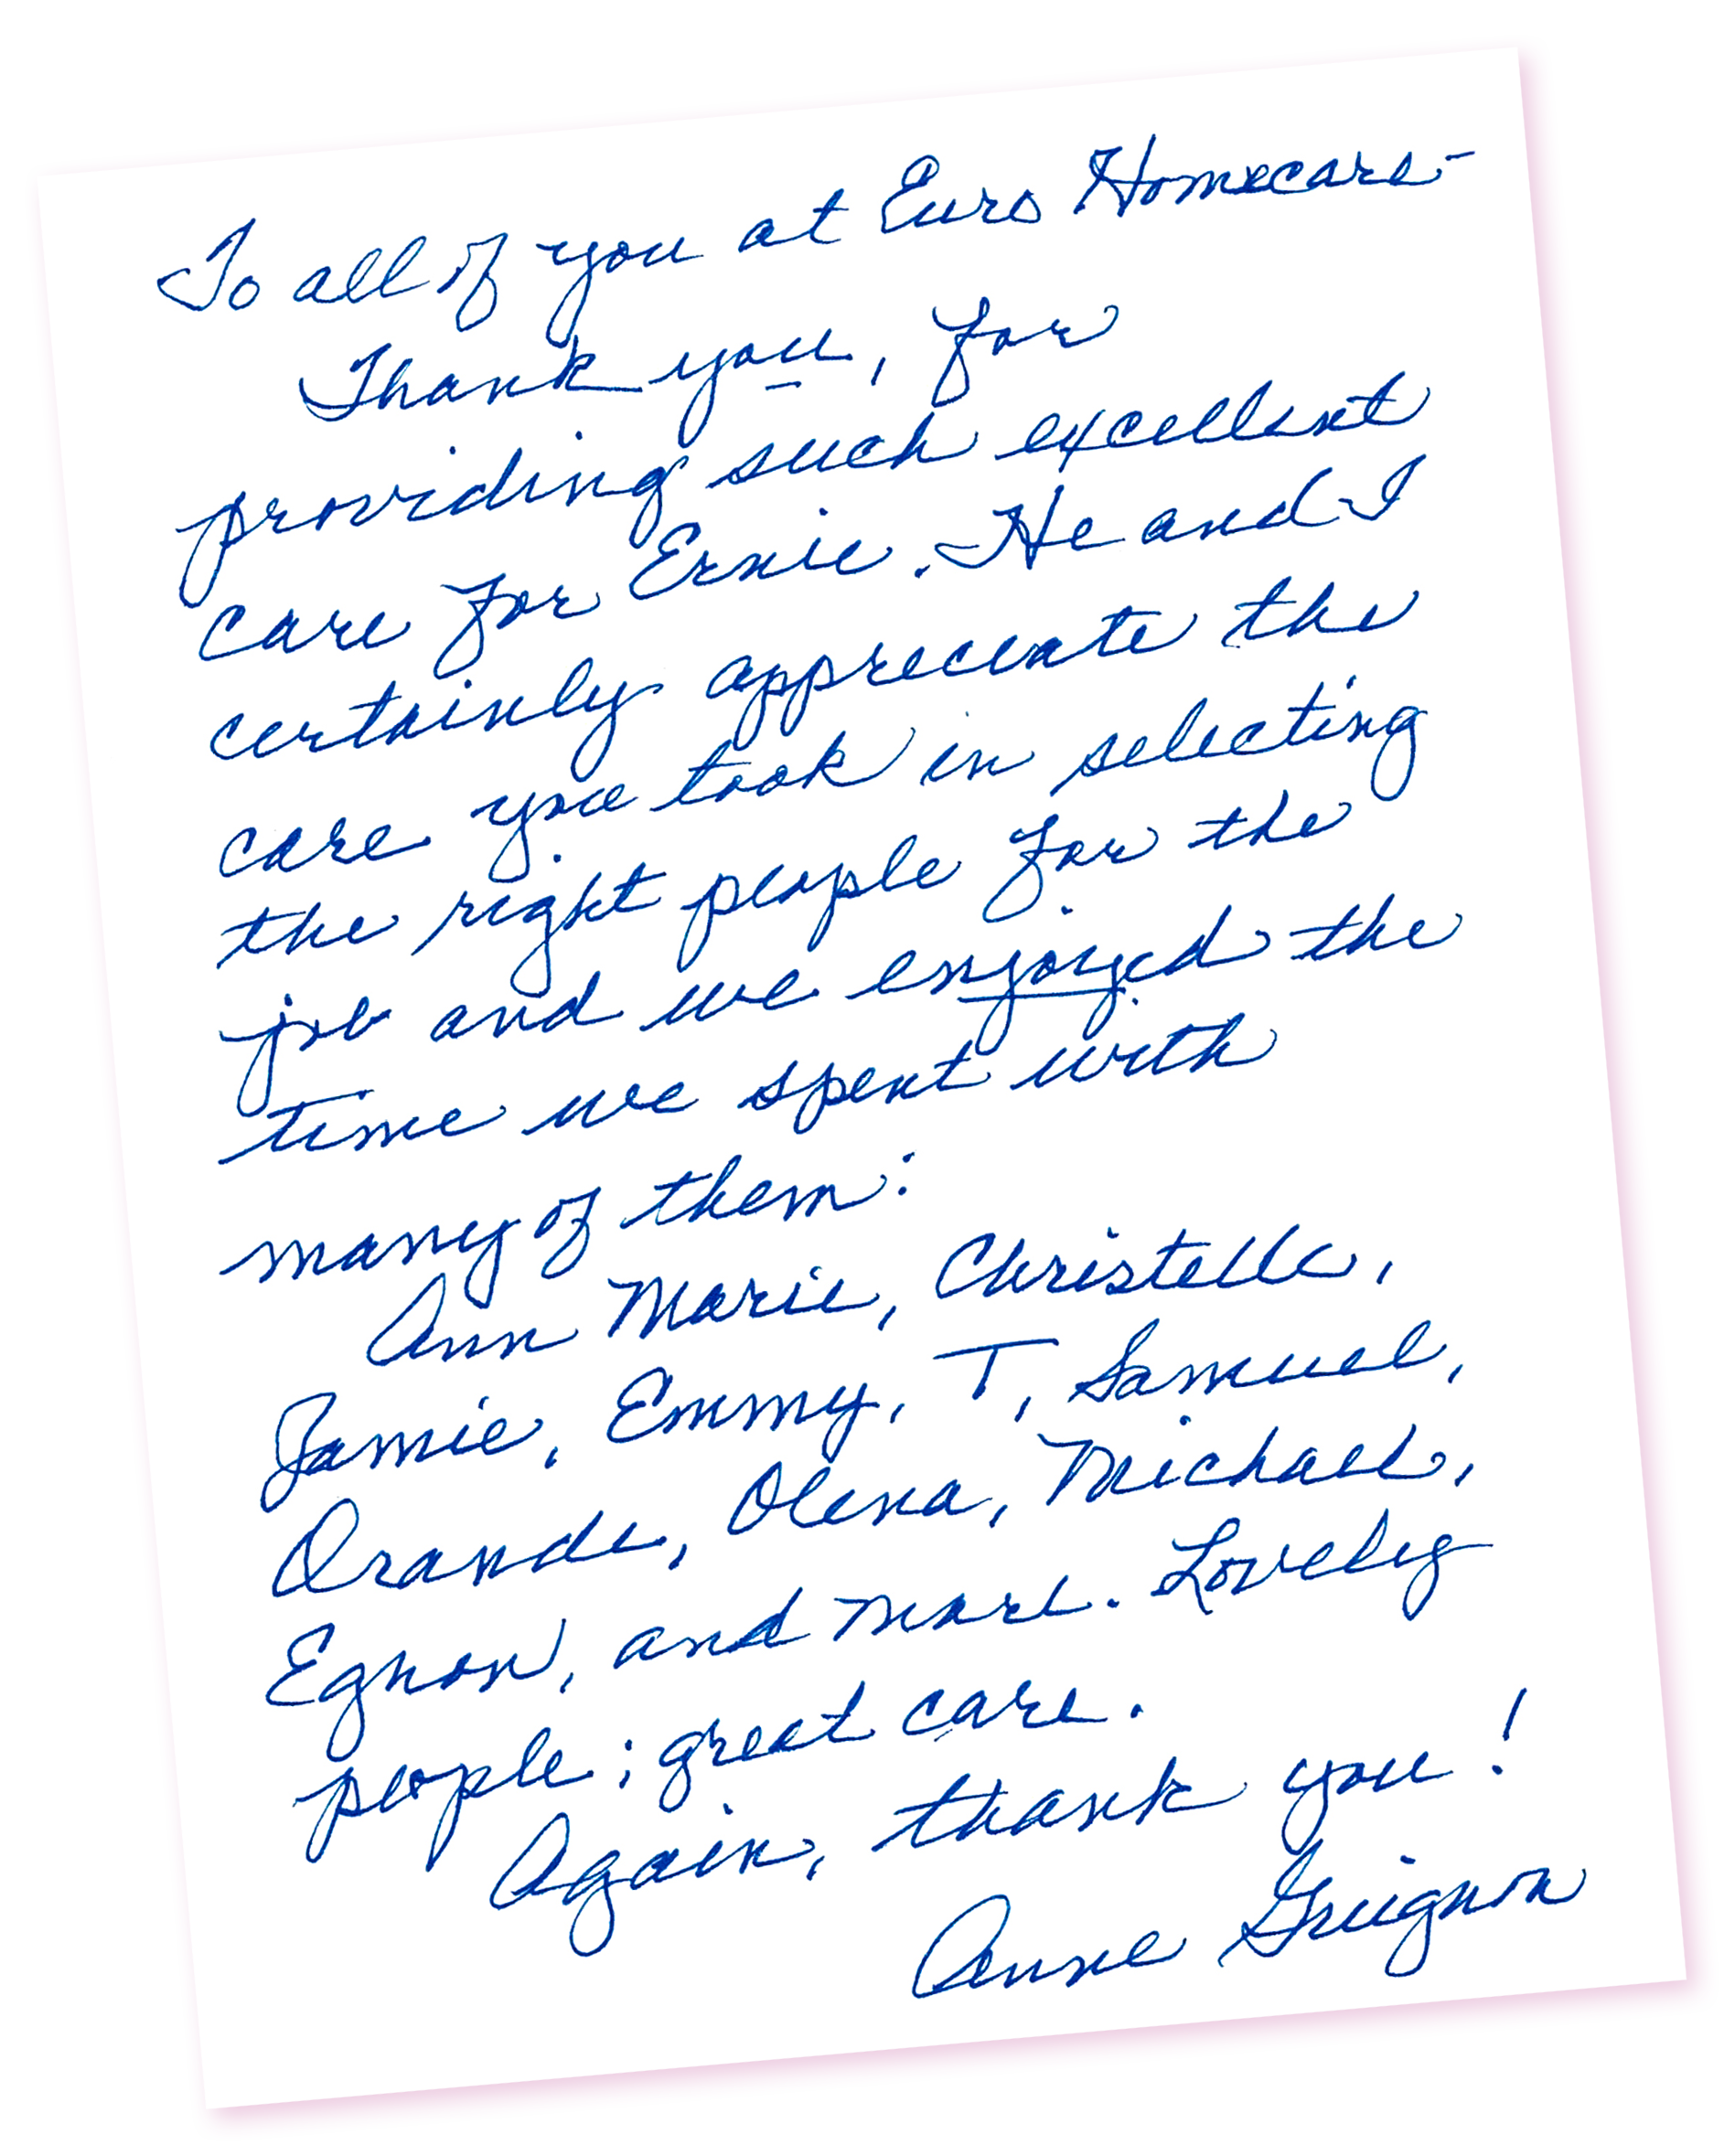 To all of you at Euro Homecare-
Thank you, for
providing such excellent
care for Ernie. He and I
certainly appreciate the
care you took in selecting
the right people for the
job and we enjoyed the
time we spent with
many of them:
Ann Marie, Christelle,
Jamie, Emmy, T, Samuel,
Orande, Olena, Michael,
Egnon, and more. Lovely
people; great care.
Again, thank you!
Anne Grignon